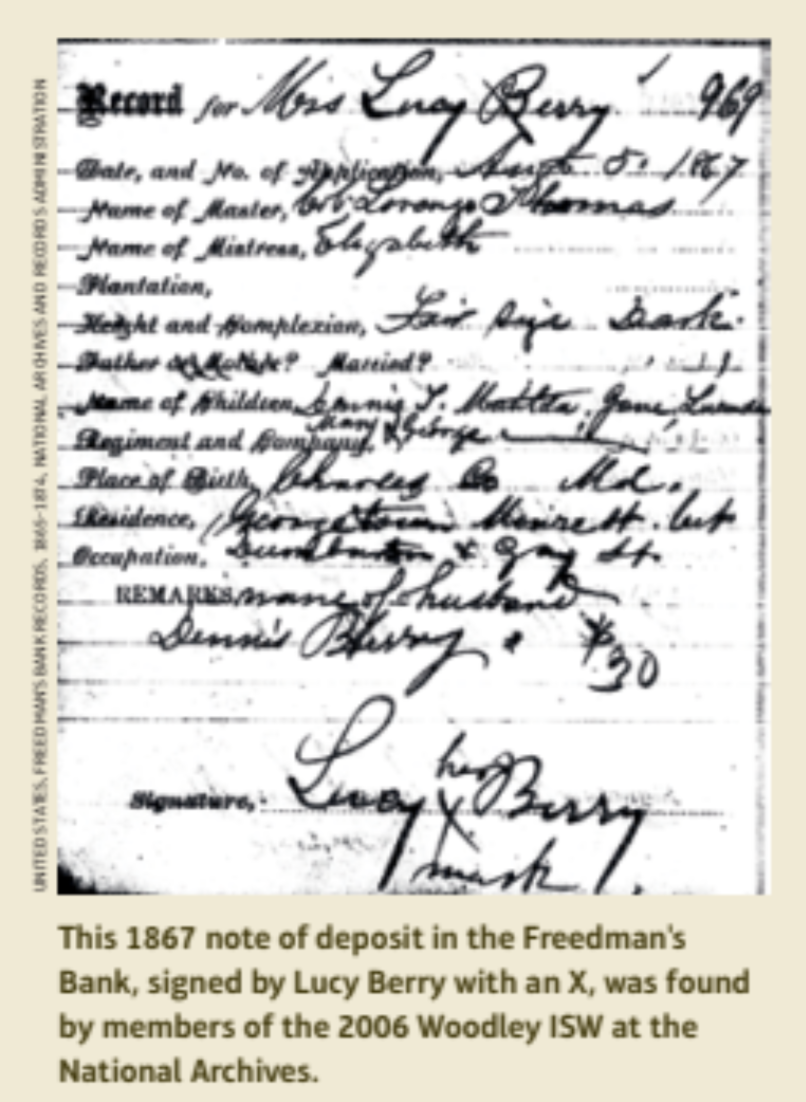 UNITED STATES, FREEDMAN'S BANK RECORDS, 1865-1874, NATIONAL ARCHIVES AND RECORDS ADMINISTRATION
Record for Miss Lucy Berry 969
Date, and No. of Application, Aug 5. 1867
Name of Master, Lorenzo Thomas
Name of Mistress, Elizabeth
Plantation,
Height and Complexion, Fair size Dark.
Father or Mother? Married?
Name of Children, Dennis T. Matilda, Jane,
Mary & George
Regiment and Company,
Place of Birth, Charles Co Md.
Residence, Georgetown Monroe st. bet
Occupation, Dumbarton & Gay St.
REMARKS, name of husband
Dennis Berry $30
Signature, Lucy Berry
her
X
mark
This 1867 note of deposit in the Freedman's
Bank, signed by Lucy Berry with an X, was found
by members of the 2006 Woodley ISW at the
National Archives.